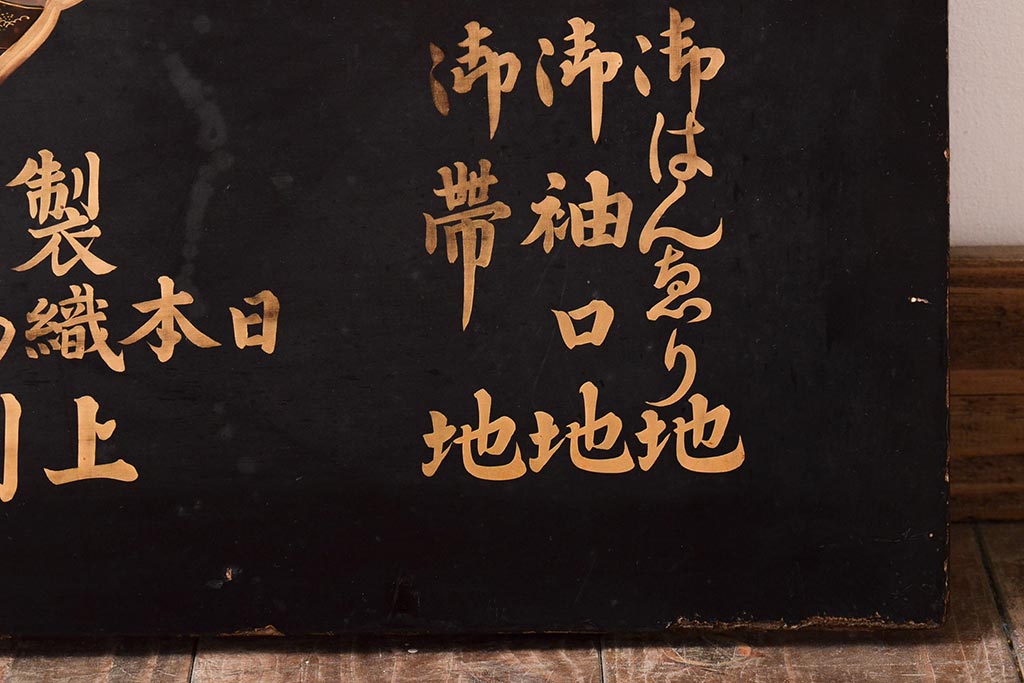 御はんゑり地
御袖口地
御帯地
製
日本織
上